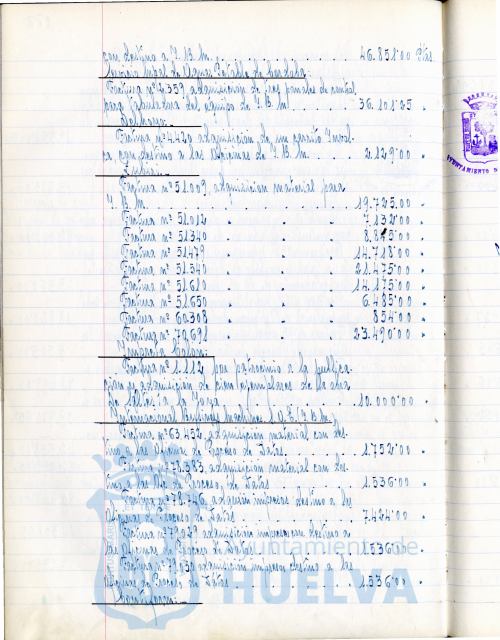 con destino a I.B.M. . . . . . . . . 46.851'00 Ptas.
Servicio Mpal. de Aguas Potables de Cordoba:
Factura nº 4.359 adquisicion de tres paneles de control
para Tabuladora del equipo de I.B.M. . . . 36.101'25 "
Factura nº 4.420 adquisicion de un
con destino a las Oficinas de I.B.M. . . . 2.129'00 "
Factura nº 51.009 adquisicion material para
I.B.M. . . . . . . . . . 19.725,00 "
Factura nº 51.012 " " " 7.132'00 "
Factura nº 51.340 " " " 8.845'00 "
Factura nº 51.479 " " " 14.718'00 "
Factura nº 51.540 " " " 21.475'00 "
Factura nº 51.610 " " " 14.175'00 "
Factura nº 51.650 " " " 6.485'00 "
Factura nº 60.308 " " " 854'00 "
Factura nº 70.691 " " " 23.490'00 "
Imprenta Colon:
Factura nº 1.112 por patrocinio a la publica-
cion y adquisicion de cien ejemplares de la obra
10.000'00 "
International Business Machines S.A.E. (I.B.M.)
Factura nº 63.452, adquisicion material con des-
tino a la Oficina de Proceso de Datos. . . . 1.752'00 "
Factura nº 78.383, adquisicion material con des-
tino a la Of. de Proceso de Datos. . . . 1.536'00 "
Factura nº 78.746, adquisicion impresos destino a las
Oficinas Proceso de Datos . . . . 7.424'00 "
Factura nº 79.029 adquisicion impresos destino a
las Oficinas Proceso de Datos . . . 1.536'00 "
Factura nº 79.030 adquisicion impresos destino a las
Oficinas de Proceso de Datos. . . . 1.536'00 "
Ayuntamiento de
HUELVA
AYUNTAMIENTO D